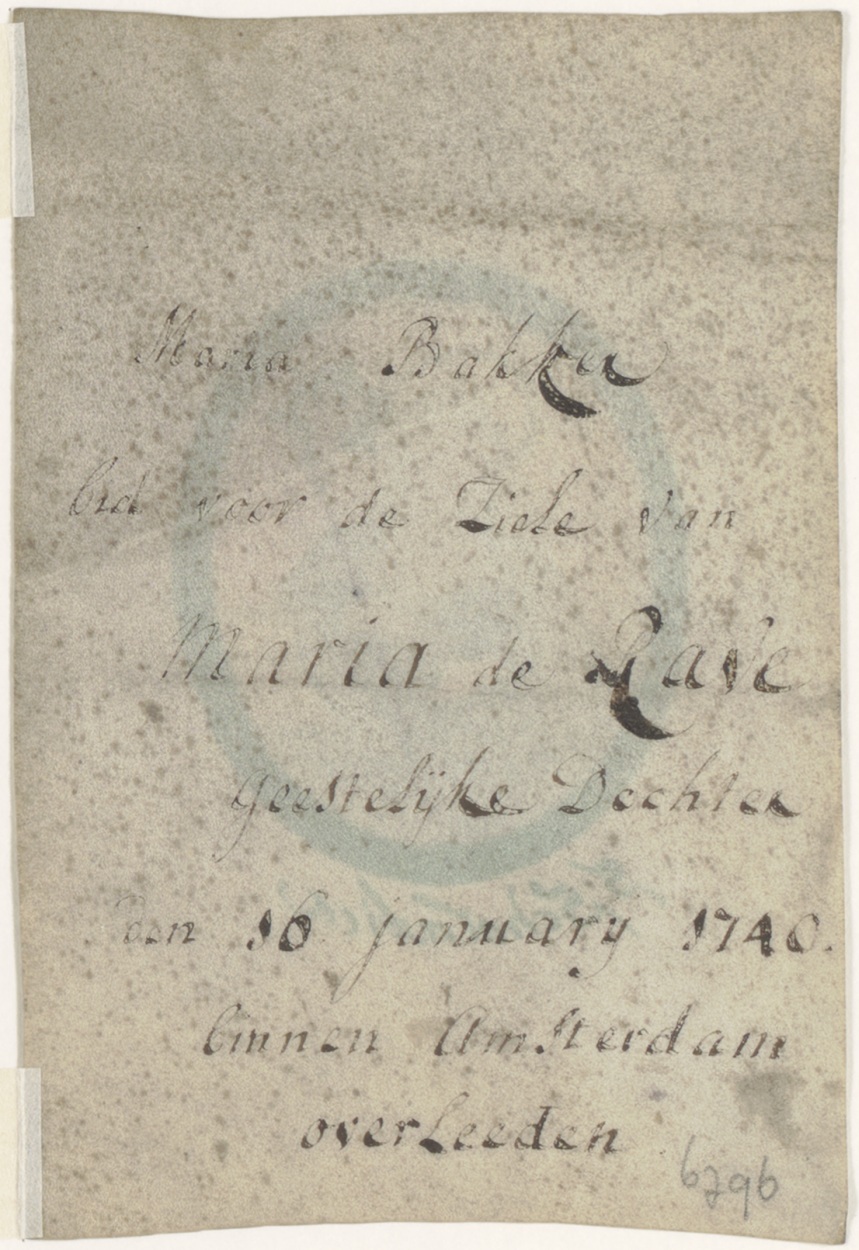 Maria Bakker
bid voor de Ziele van
Maria de Rave
geestelÿke Dochter
den 16 january 1740.
binnen Amsterdam
overleeden